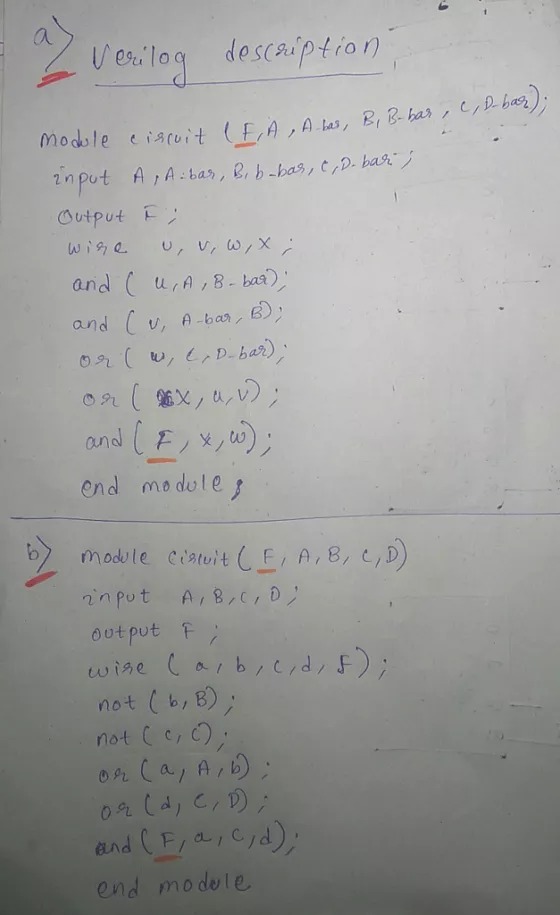 a) Verilog description
module circuit (F, A, A-bar, B, B-bar, C, D-bar);
input A, A-bar, B, b-bar, C, D-bar;
output F;
wire u, v, w, x;
and (u, A, B-bar);
and (v, A-bar, B);
or (w, C, D-bar);
or (x, u, v);
and (F, x, w);
end module;
b) module circuit (F, A, B, C, D)
input A, B, C, D;
output F;
wire (a, b, c, d, f);
not (b, B);
not (c, C);
or (a, A, b);
or (d, C, D);
and (F, a, c, d);
end module